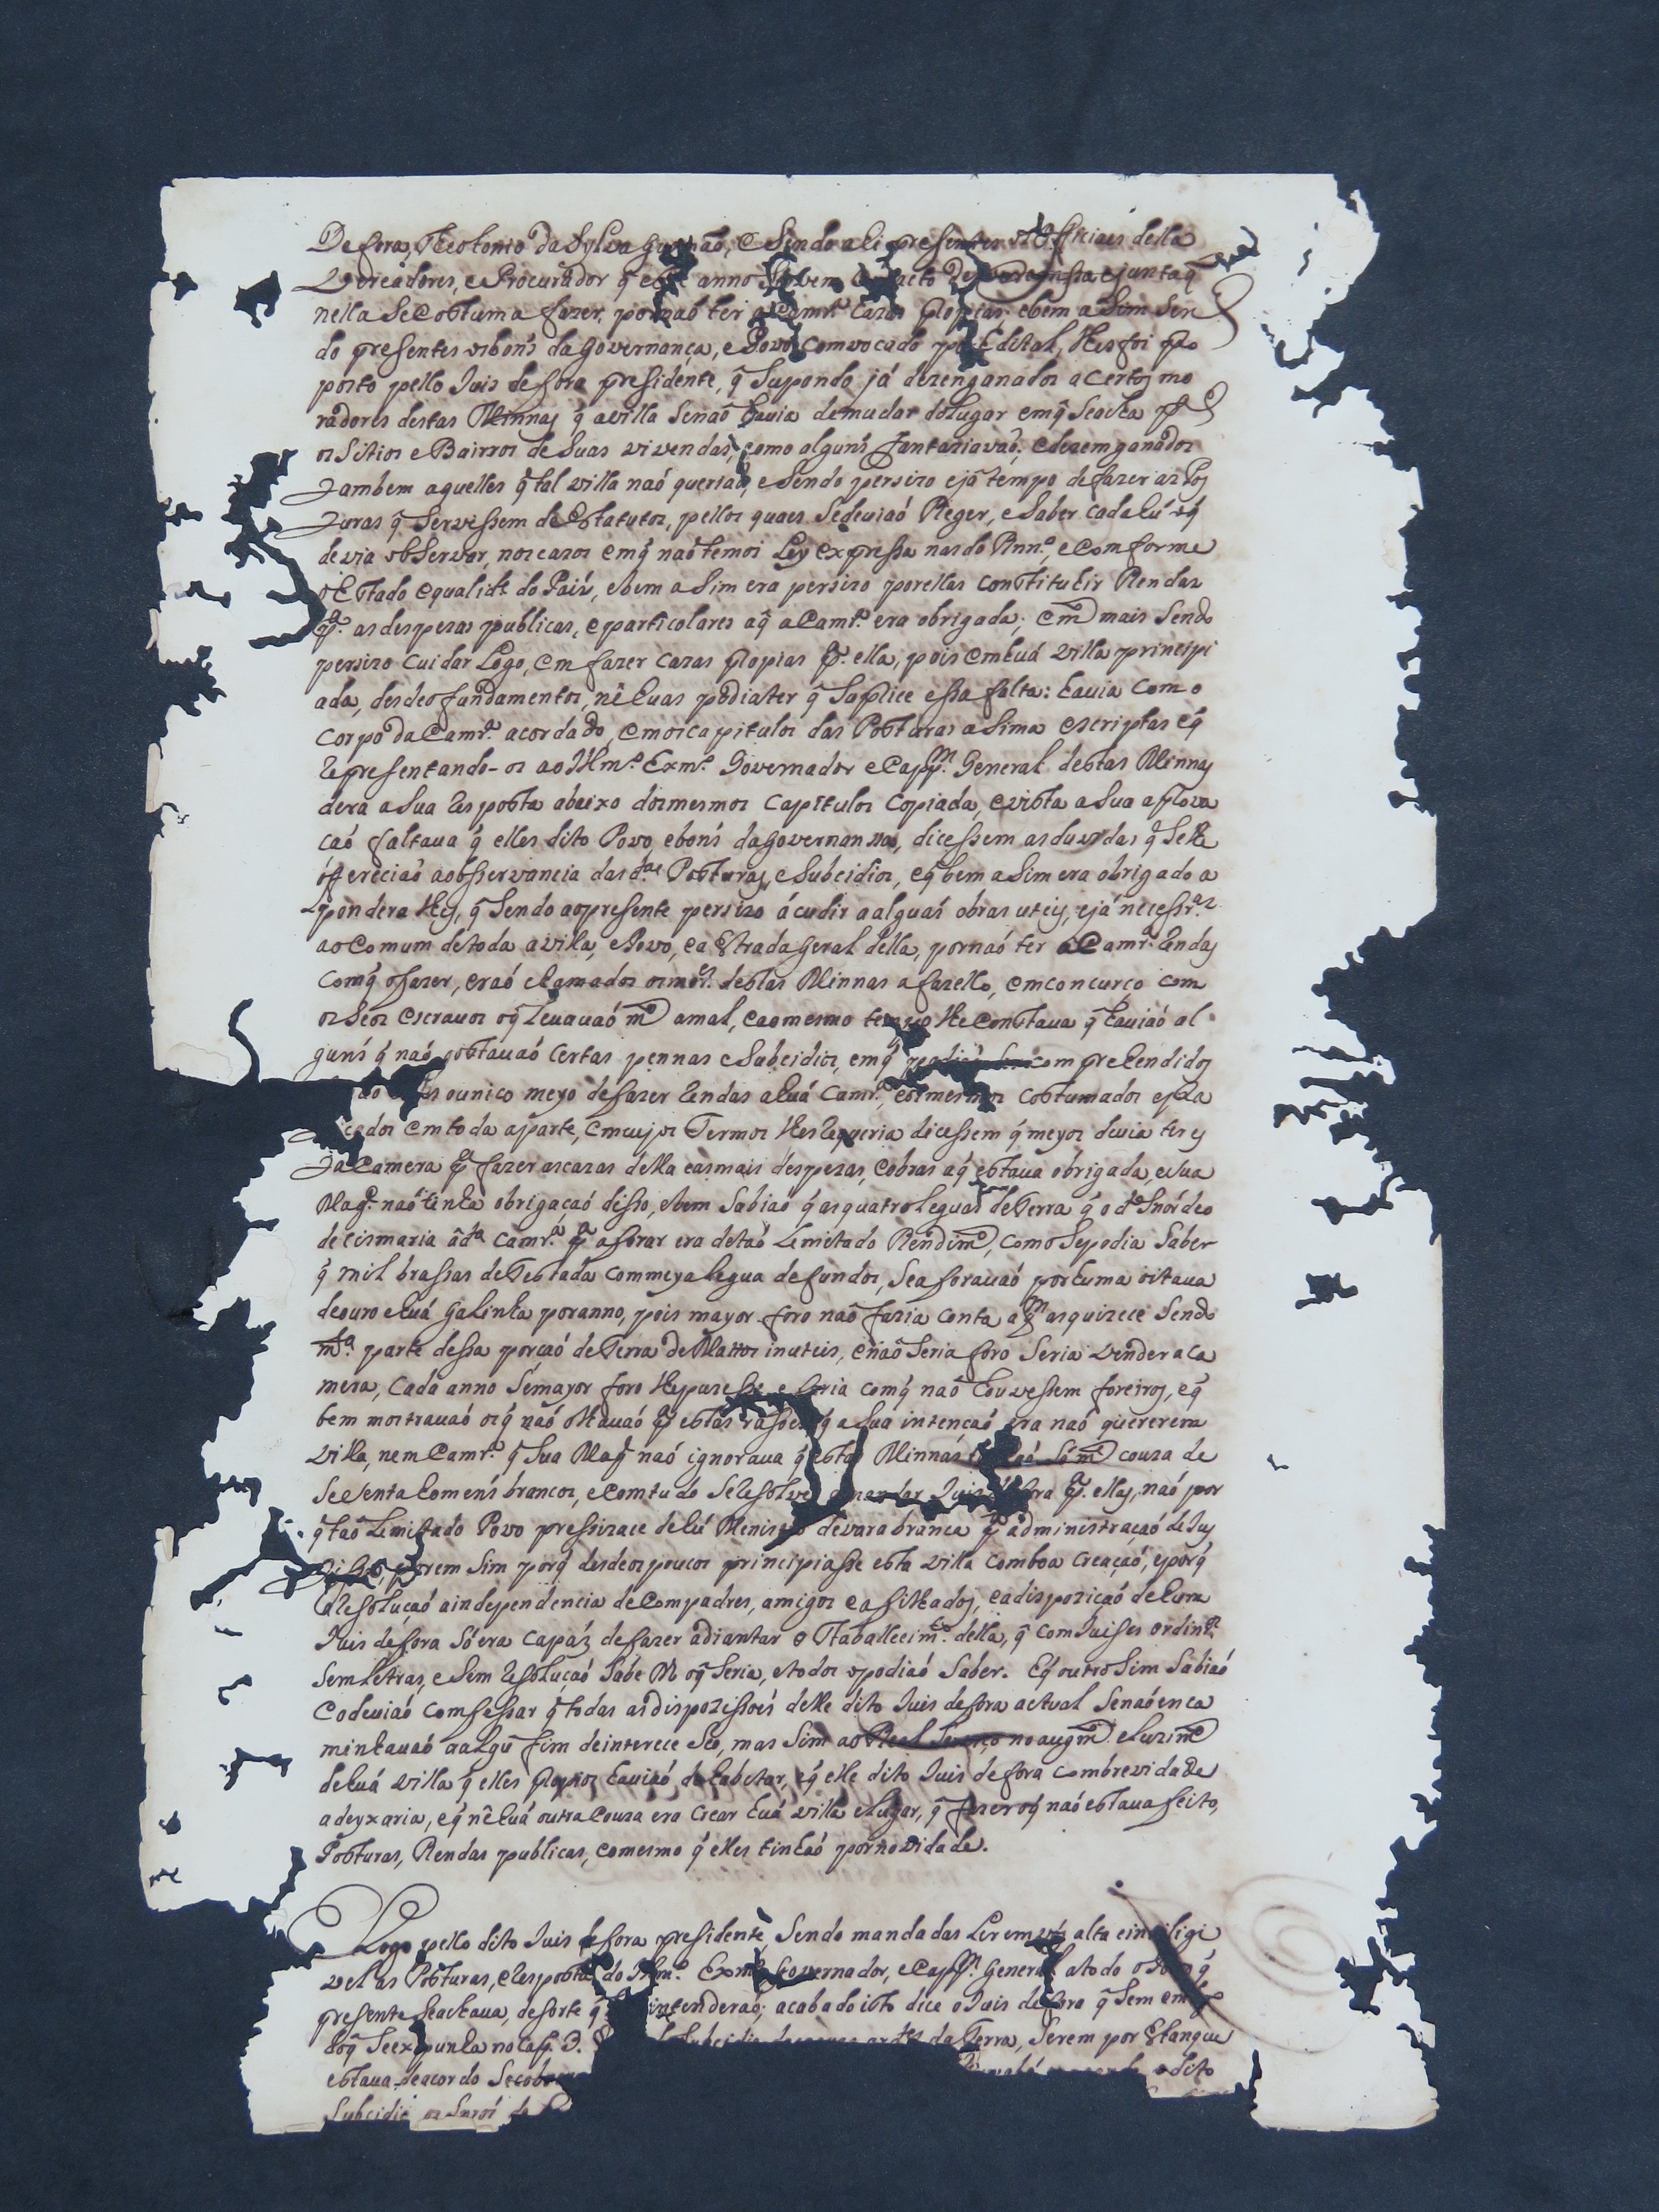 De fora, Theotonio da Sylva Gusmaõ, e Sendo ali presentes os Officiaes della
Vereadores, e Procurador q̃ este anno Servem acto de Vereança ejuntaq̃
nella Se Costuma fazer, por naõ ter a Camr.ª Cazas Propias; ebem aSim Sen
do presentes osbons da Governança, e Povo Comvocado por Edital, lhes foi pro
posto pello Juis de fora presidente, q̃ Supondo já dezenganados a certos mo
radores destas Minnas q̃ avilla Senaõ havia demudar dolugar emq̃ Seacha pª
os Sitios e Bairros de Suas vivendas, como alguns fantaziavaõ; e dezemganados
Tambem aquelles q̃ tal villa naó queriaõ, e Sendo persizo ejá tempo defazer as Pos
Turas q̃ Servissem de Estatutos, pellos quaes Sedeviaó Reger, e Saber cada hú oq̃
devia obServar, nos cazos emq̃ naó temos Ley expressa nas do Rnn.º, e Comforme
o Estado equalid.e do País, ebem aSim era persizo porellas Constituhir Rendas
pª. as despezas publicas, eparticolares aq̃ a Camr.ª era obrigada; em.to mais Sendo
persizo Cuidar Logo, em fazer Cazas Propias pª. ella, pois emhuá Villa principi
ada, desdeos fundamentos, nẽ huas podiater q̃ Suprice essa falta: havia Com o
Corpo da Camr.ª acordado, emos capitulos das Posturas aSima escriptas eq̃
Representando-os ao Illm.º Exm.º Governador e Capp.m General destas Minnas
dera aSua Resposta abaixo dosmesmos Capitulos Copiada, evista aSua aprova
çaó faltava q̃ elles dito Povo, ebons da governan, dicessem as duvidas q̃ Selhe
offereciaõ aobsservancia das d.as Posturas, e Subcidios, eq̃ bem aSim era obrigado a
ponderalhes, q̃ Sendo aopresente persizo ácudir aalguás obras uteis, ejá necessr.as
ao Comum detoda avilla, ePovo, ea Estrada geral della, pornaó ter aCamr.ª Rendas
Comq̃ ofazer, eraó chamados osmor.es destas Minnas afazello, emconcurço com
os Seos Escravos oq̃ Levavaó m.to amal, eaomesmo tempo lhe Constava q̃ haviaó al
guns q̃ naó gostavaó Certas pennas e Subcidios, emq̃ comprehendidos
ounico meyo defazer Rendas ahuá Camr.ª, eosmesmos Costumados epra
cados emtoda aparte, emcujos Termos lhes Requeria dicessem q̃ meyos devia ter es
Ta Camera pª fazer ascazas della easmais despezas, eobras aq̃ estava obrigada, eSua
Mag.e naó tinha obrigaçaó disso, ebem Sabiaó q̃ asquatro Leguas de Terra q̃ o d.º Snór deo
decismaria ád.ª Camr.ª pª aforar era detaó Lemitado Rendim.to, como Sepodia Saber
q̃ mil brassas de Testada Commeya legua defundos, Seaforavaó porhuma oitava
deouro ehuá Galinha poranno, pois mayor foro naó fazia conta aq.m asquizece Sendo
m.ta parte dessa porçaó de Terra de Mattos inuteis, enaó Seria foro Seria vender a Ca
mera, Cada anno Semayor foro lhepuzesse e Seria comq̃ naó houvessem foreiros, eq̃
bem mostravaó osq̃ naó olhavaó pª estas rasoes q̃ aSua intençaó era naó quererem
Villa, nem Camr.ª q̃ Sua Mag.e naó ignorava q̃ estas Minnas Sóm.te couza de
Secenta homens brancos, e Comtudo SeResolveo amandar Juis defora pª. elles, naó por
q̃ taó Lemitado Povo pressizace dehú Menistro devara branca pª administraçaó deJus
porem Sim porq̃ desdeos poucos principiasse esta villa Comboa Creaçaó, eporq̃
aResoluçaó aindependencia de Compadres, amigos eafilhados, eadispoziçaó dehum
Juis defora Só era Capaz defazer adiantar o Staballecim.to della, q̃ com Juises ordinr.os
Sem Letras, e Sem Resoluçaó Sabe M oq̃ Seria, etodos opodiaó Saber. Eq̃ outro Sim Sabiaó
edeviaó Comfessar q̃ todas as dispozissoes delle dito Juis defora actual Senaóenca
minhavaó aalgũ fim deinterece Seo, mas Sim ao Real Serviço noaugm.to eLuzim.to
dehuá villa q̃ elles propios haviaó dehabitar, eq̃ elle dito Juis defora Combrevidade
adeyxaria, eq̃ nẽ huá outra Couza era Crear huá villa eLugar, q̃ fazer oq̃ naó estava feito,
Posturas, Rendas publicas, eomesmo q̃ elles tinhaó pornovidade.
Logo pello dito Juis defora presidente, Sendo mandadas Ler emvós alta einteligi
vel as Posturas, eResposta do Illm.º Exm.º Governador, e Capp.m General atodo o Povo q̃
presente Seachava, desorte q̃ intenderaó; acabado isto dice o Juis de fora q̃ Sem em
doq̃ Seexpunha no Cap. 3. Subcidio da Terra, Serem por Estanque
estava deacordo Secobra odito
Subcidio